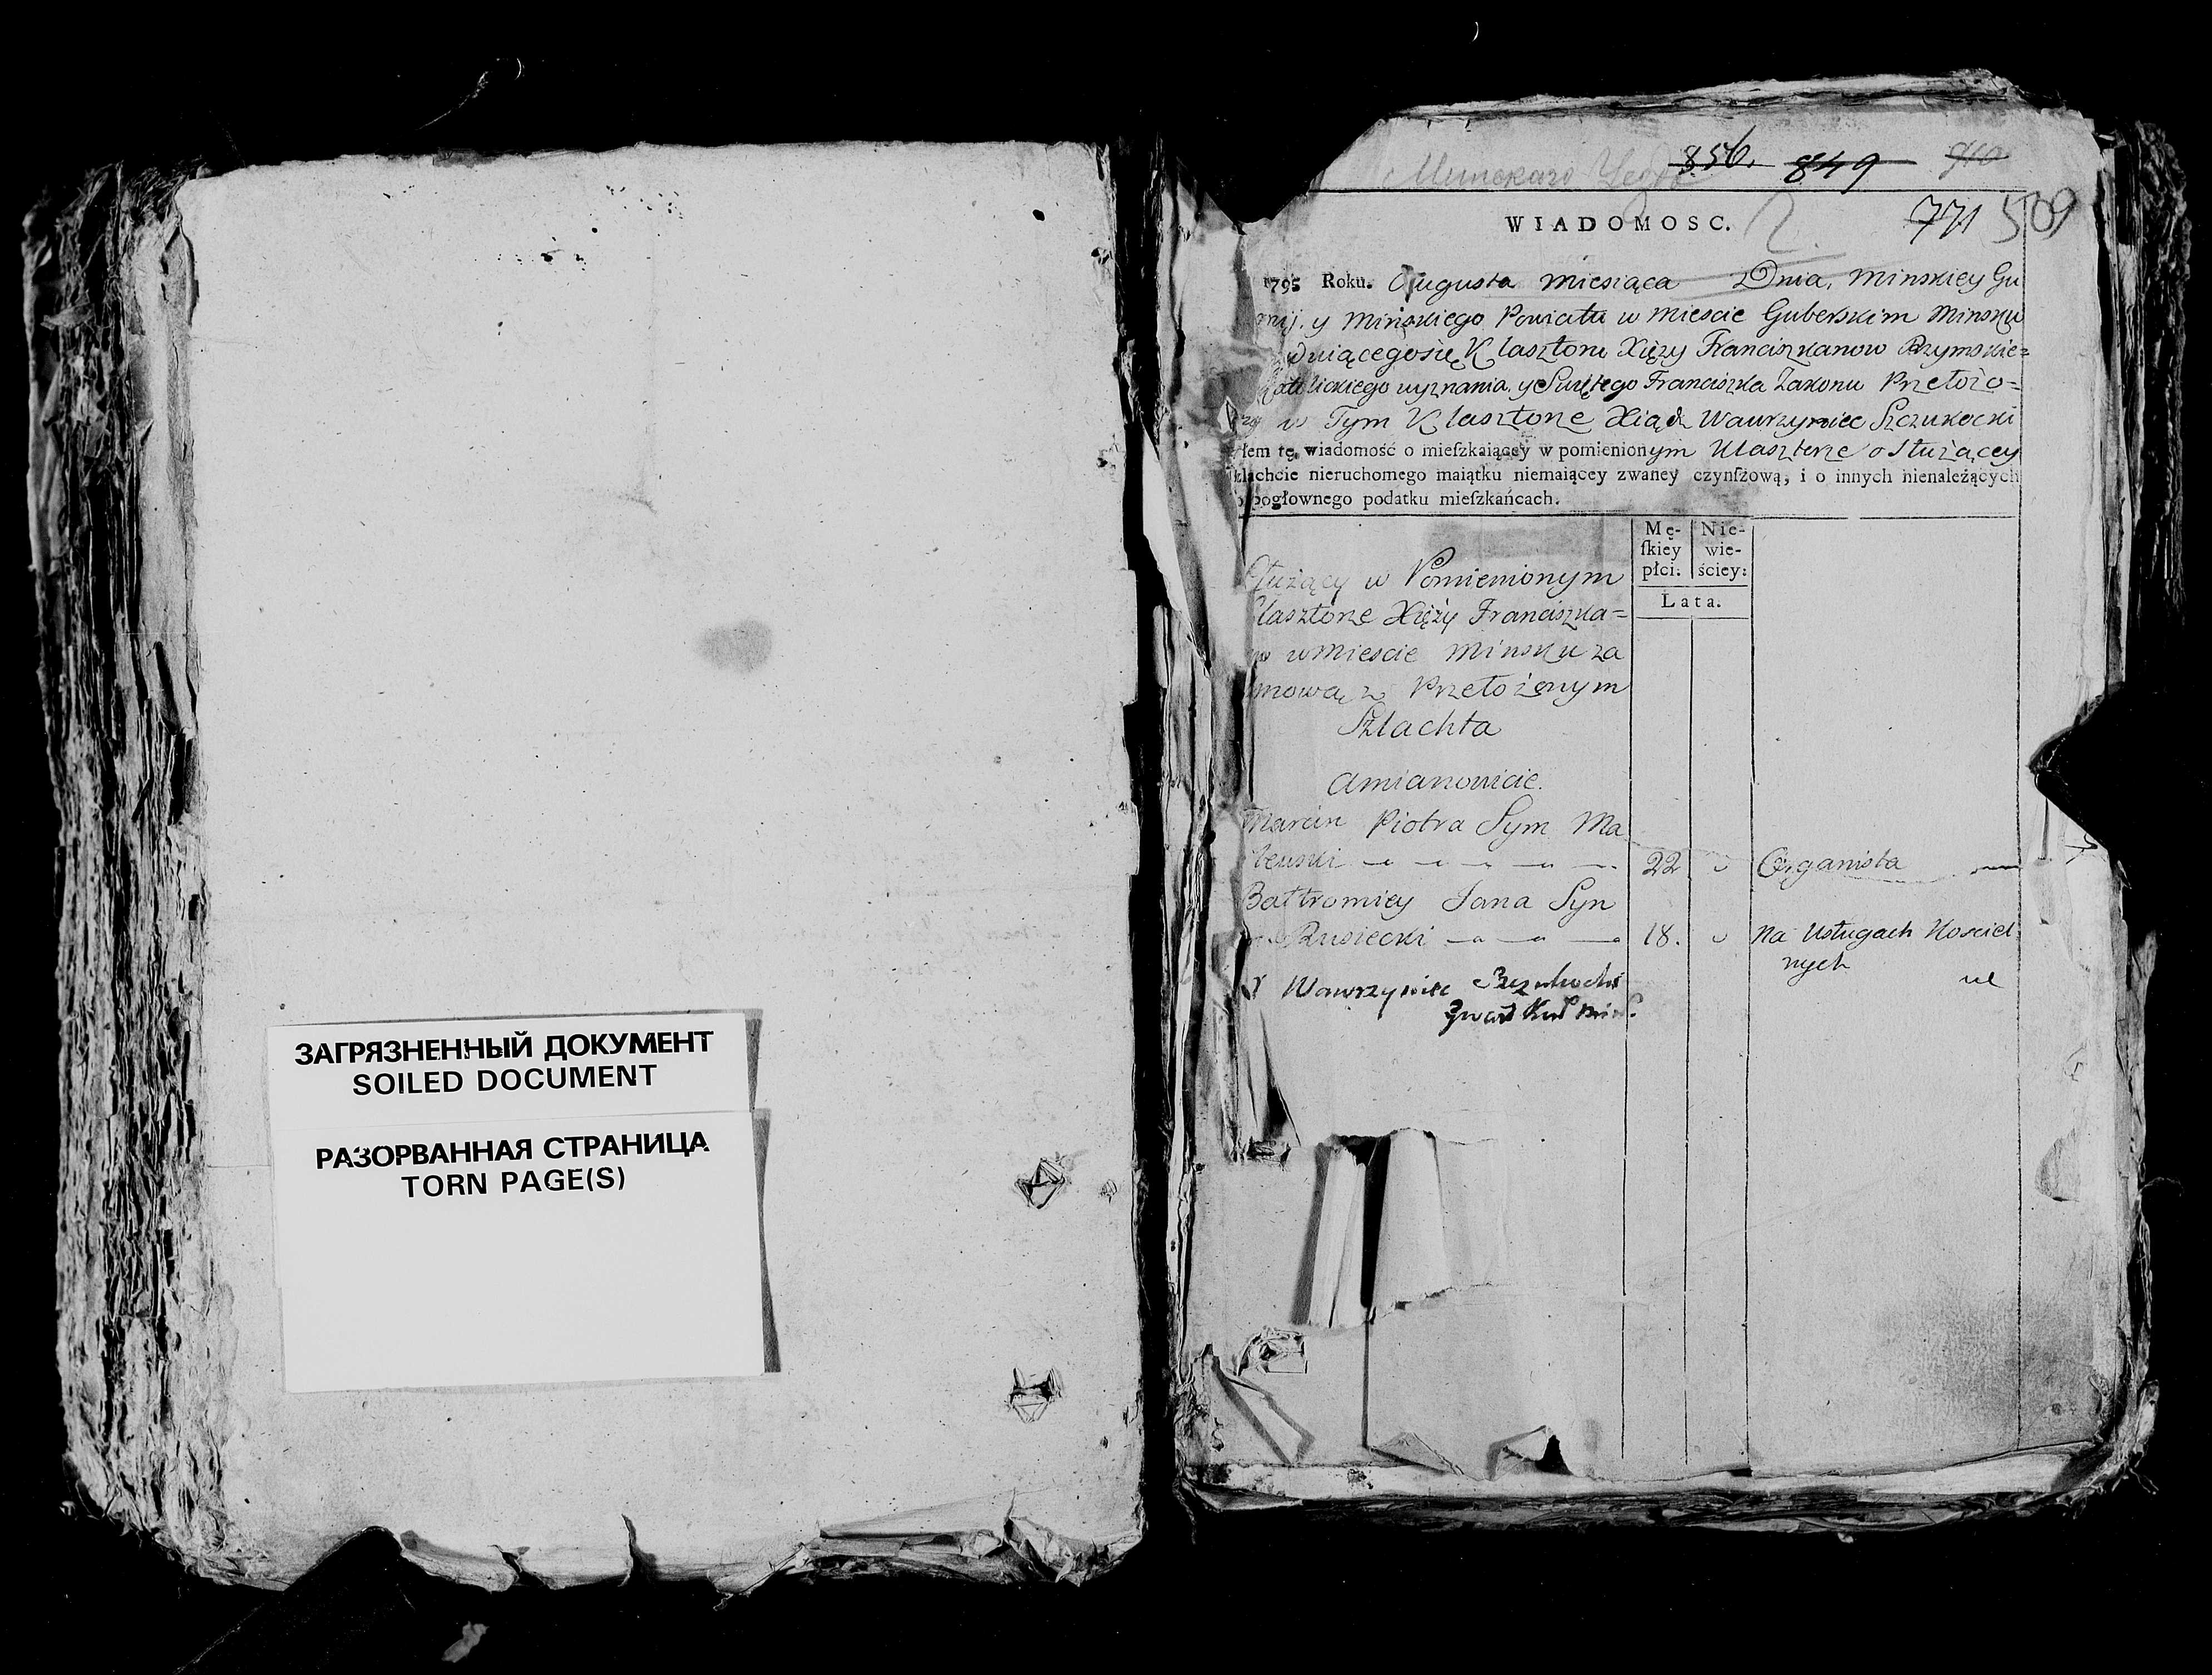 ЗАГРЯЗНЕННЫЙ ДОКУМЕНТ
SOILED DOCUMENT
РАЗОРВАННАЯ СТРАНИЦА
TORN PAGE(S)
856. 849
Минскаго
WIADOMOSC.
771 509
1795 Roku. Augusta Miesiąca Dnia, Minskiey Gu
y Minskiego Powiatu w Miescie Guberskim Minsku
Klasztoru Xięży Franciszkanow Rzymskie=
wyznania, y Swiętego Franciszka Zakonu Przełożo=
w Tym Klasztorze Xiądz Wawrzyniec Szczukocki
łem tę wiadomość o mieſzkaiącey w pomienionym Klasztorze o Służącey
szlachcie nieruchomego maiątku niemaiącey zwaney czynſzową, i o innych nienależących
pogłownego podatku mieſzkańcach.
Mę-
ſkiey
płci:
Nie-
wie-
ściey:
Lata.
Służący w Pomienionym
Klasztorze Xięży Franciszka=
w Miescie Minsku za
mową z Przełożonym
Szlachta
Marcin Piotra Sym Ma
22 Organista
Bałtromiey Jana Syn
Rusiecki 18. Na Usługach Kosciel
nych
X Wawrzyniec